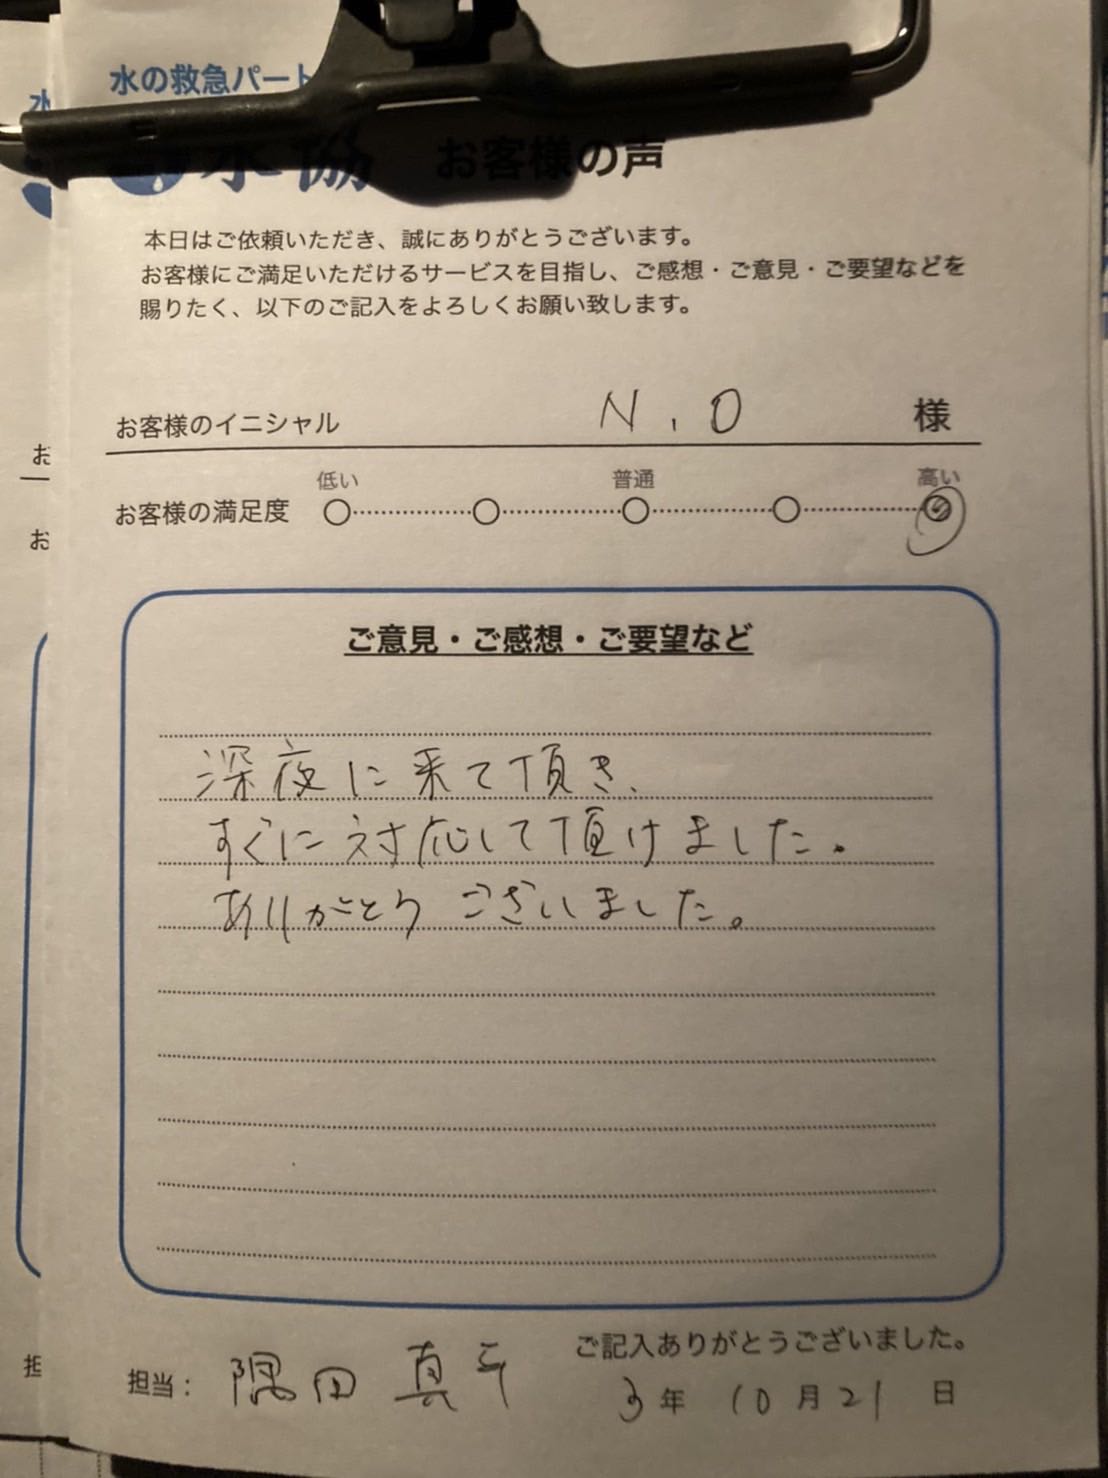 水の救急パート
水協 お客様の声
本日はご依頼いただき、誠にありがとうございます。
お客様にご満足いただけるサービスを目指し、ご感想・ご意見・ご要望などを
賜りたく、以下のご記入をよろしくお願い致します。
お客様のイニシャル N.O 様
低い 普通 高い
お客様の満足度
ご意見・ご感想・ご要望など
深夜に来て頂き、
すぐに対応して頂けました。
ありがとうございました。
ご記入ありがとうございました。
担当: 隅田 真平
3年 10月21日